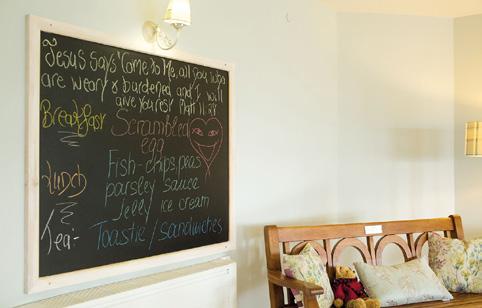 Jesus says "Come to Me, all you who
are weary & burdened and I will
give you rest Matt 11 28
Breakfast Scrambled
egg
Lunch Fish-chips, peas
parsley sauce
Jelly ice cream
Tea:- Toastie / sandwiches